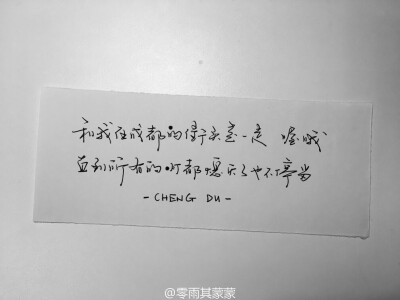 和我在成都的街头走一走 喔哦
直到所有的灯都熄灭了也不停留
- CHENG DU -
@零雨其蒙蒙